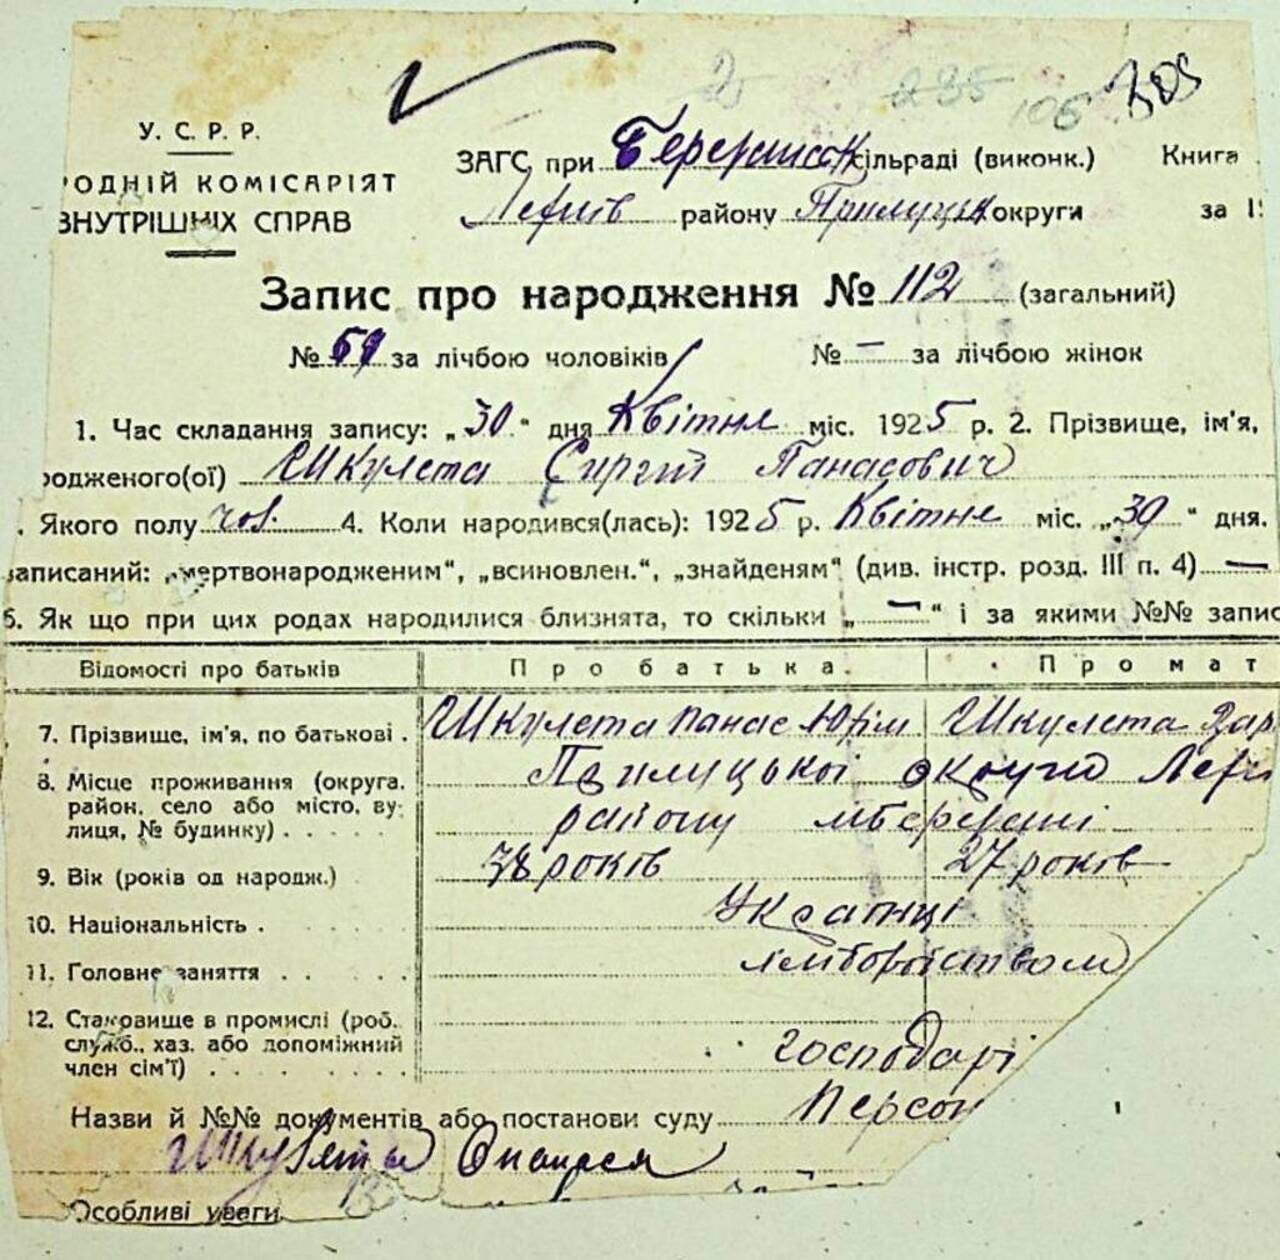 305
У. С. Р. Р.
РОДНІЙ КОМІСАРІЯТ
ВНУТРІШНІХ СПРАВ
ЗАГС при сільраді (виконк.) Книга
району Прилуцьк округи за 1
Запис про народження № 112 (загальний)
№ за лічбою чоловіків № — за лічбою жінок
1. Час складання запису: „30“ дня Квітня міс. 1925 р. 2. Прізвище, ім'я,
родженого(ої) Шкулета Сиргій Панасович
. Якого полу чол. 4. Коли народився(лась): 1925 р. Квітня міс. „30“ дня.
записаний: „мертвонародженим“, „всиновлен.“, „знайденям“ (див. інстр. розд. III п. 4) —
6. Як що при цих родах народилися близнята, то скільки „—“ і за якими №№ запис
Відомості про батьків Про батька. Про мат
7. Прізвище, ім'я, по батькові . Шкулета Панас Юрім Шкулета
8. Місце проживання (округа, район, село або місто, вулиця, № будинку) . . . . . Прилуцької округи
району
9. Вік (років од народж.) 38 років 27 років
10. Національність . Українці
11. Головне заняття . . . . хліборобством
12. Становище в промислі (роб. служб., хаз. або допоміжний член сім'ї) . . . . . . . господарі
Назви й №№ документів або постанови суду Персон
Особливі уваги